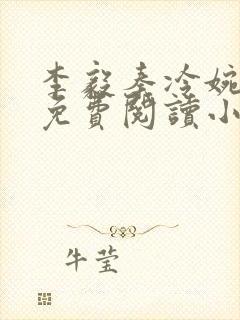 李毅秦冷婉
免費閱讀小
牛莹